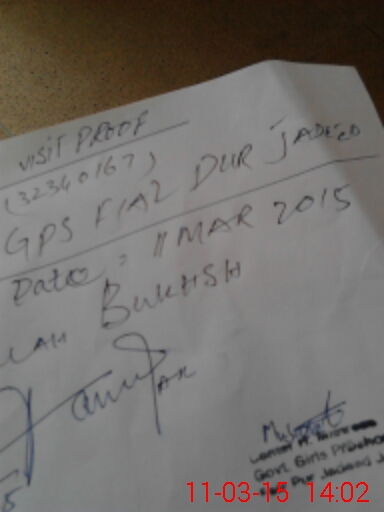 VISIT PROOF
(32340167)
GPS FIAZ PUR JADEED
Date: 11 MAR 2015
LAH BUKHSH
Govt. Girls
Pur Jadeed
11-03-15 14:02